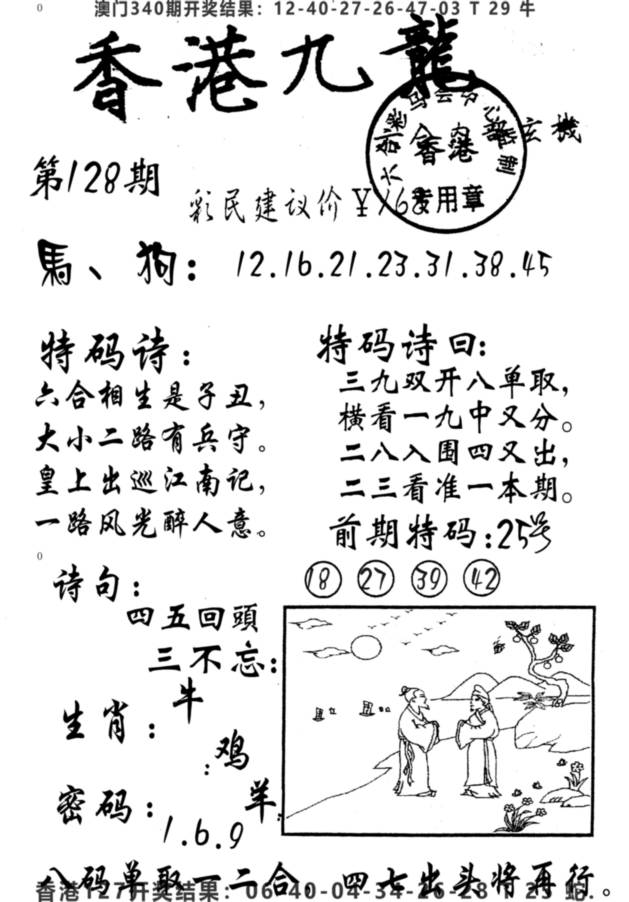 澳门340期开奖结果：12-40-27-26-47-03 T 29 牛
香港九龍
玄機
香港
专用章
第128期
彩民建议价￥168
馬、狗：12.16.21.23.31.38.45
特码诗：
六合相生是子丑，
大小二路有兵守。
皇上出巡江南记，
一路风光醉人意。
特码诗曰：
三九双开八单取，
横看一九中又分。
二八入围四又出，
二三看准一本期。
前期特码：25号
18 27 39 42
诗句：
四五回頭
三不忘：
生肖：牛
：鸡
羊
密码：1.6.9
八码单取一二合，四七出头将再行。
香港127开奖结果：06-40-04-34-26-28